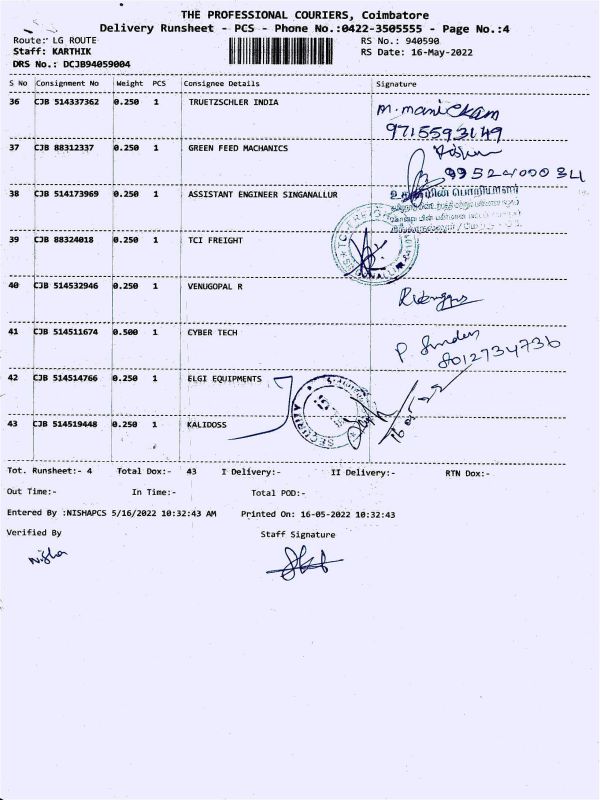 THE PROFESSIONAL COURIERS, Coimbatore
Delivery Runsheet - PCS - Phone No.:0422-3505555 - Page No.:4
Route: LG ROUTE RS No.: 940590
Staff: KARTHIK RS Date: 16-May-2022
DRS No.: DCJB94059004
S No Consignment No Weight PCS Consignee Details Signature
36 CJB 514337362 0.250 1 TRUETZSCHLER INDIA M. Manickam
9715593149
37 CJB 88312337 0.250 1 GREEN FEED MACHANICS
9952400034
38 CJB 514173969 0.250 1 ASSISTANT ENGINEER SINGANALLUR உதவி மின் பொறியாளர்
39 CJB 88324018 0.250 1 TCI FREIGHT
40 CJB 514532946 0.250 1 VENUGOPAL R
41 CJB 514511674 0.500 1 CYBER TECH P.
8012734736
42 CJB 514514766 0.250 1 ELGI EQUIPMENTS SECURITY
43 CJB 514519448 0.250 1 KALIDOSS
Tot. Runsheet:- 4 Total Dox:- 43 I Delivery:- II Delivery:- RTN Dox:-
Out Time:- In Time:- Total POD:-
Entered By :NISHAPCS 5/16/2022 10:32:43 AM Printed On: 16-05-2022 10:32:43
Verified By Staff Signature
Nisha